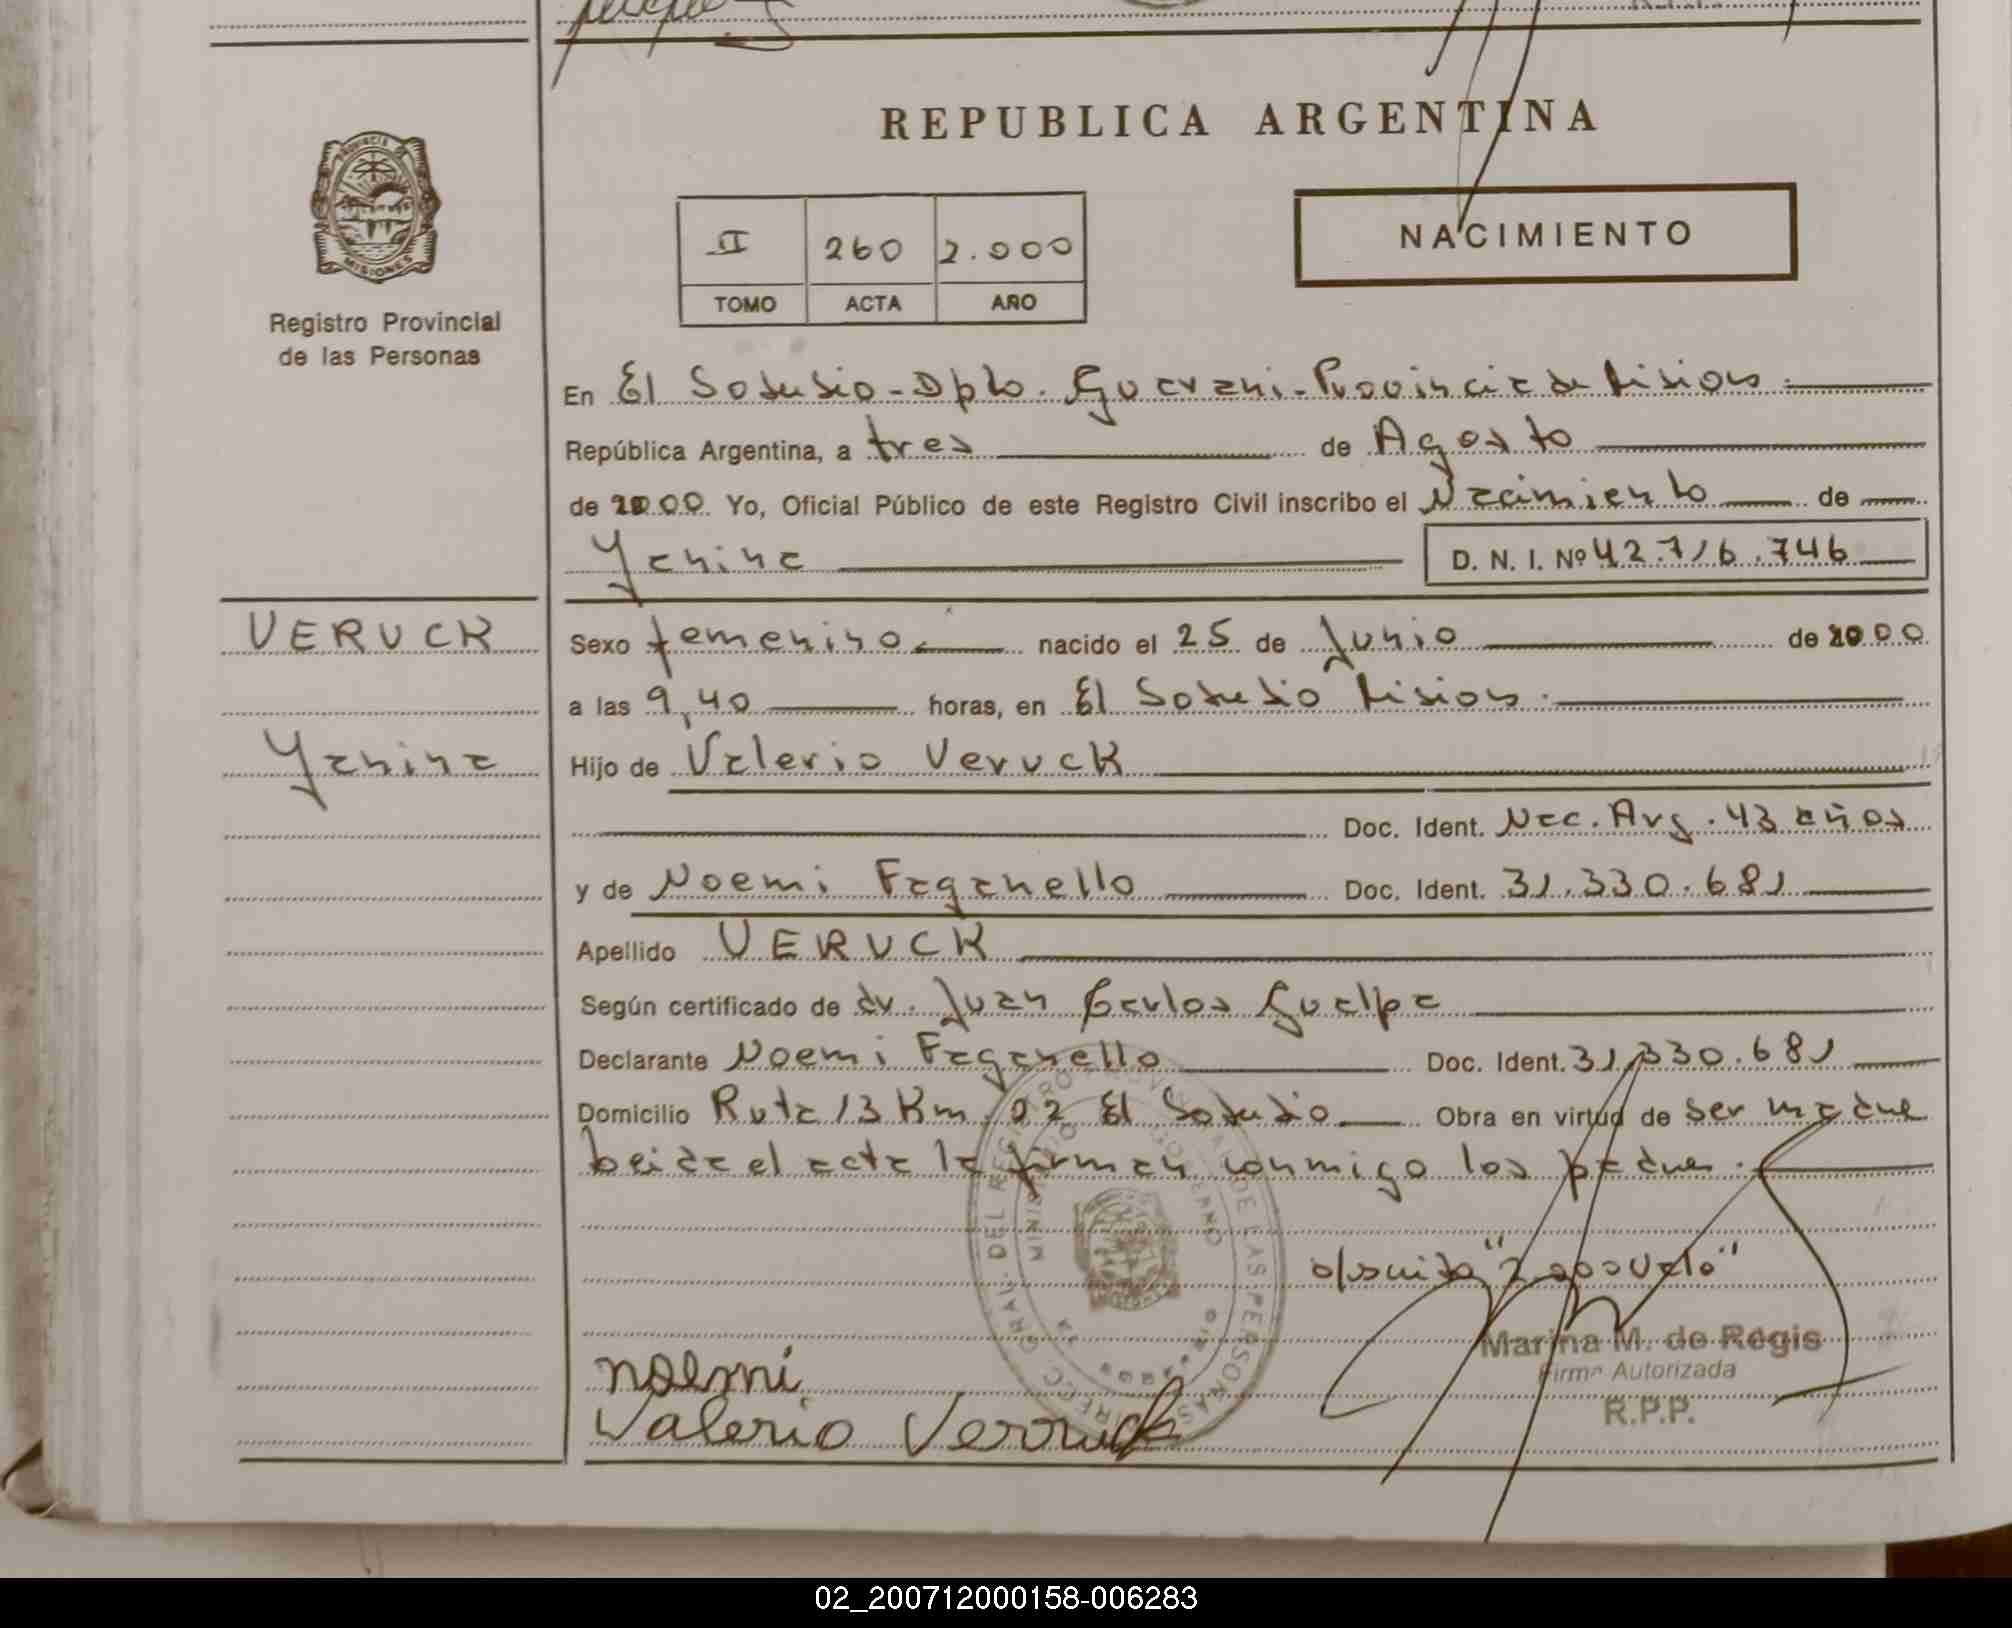 REPUBLICA ARGENTINA
PROVINCIA DE
MISIONES
Registro Provincial
de las Personas
II 260 2.000
TOMO ACTA AÑO
NACIMIENTO
En El Soberbio - Dpto. Guarani - Provincia de Misiones
República Argentina, a tres de Agosto
de 2000 Yo, Oficial Público de este Registro Civil inscribo el Nacimiento de
Yanina D. N. I. Nº 42.716.746
VERUCK
Yanina
Sexo femenino nacido el 25 de Junio de 2000
a las 9,40 horas, en El Soberbio Misiones.
Hijo de Valerio Veruck
Doc. Ident. Nac. Arg. 43 años
y de Noemi Faganello Doc. Ident. 31.330.681
Apellido VERUCK
Según certificado de dr. Juan Carlos Guelpa
Declarante Noemi Faganello Doc. Ident. 31.330.681
Domicilio Ruta 13 Km. 02 El Soberbio Obra en virtud de ser madre
leida el acta la firman conmigo los padres.
"2.000 vale"
Marina M. de Regis
Firma Autorizada
R.P.P.
noemi
Valerio Verruck
02_200712000158-006283